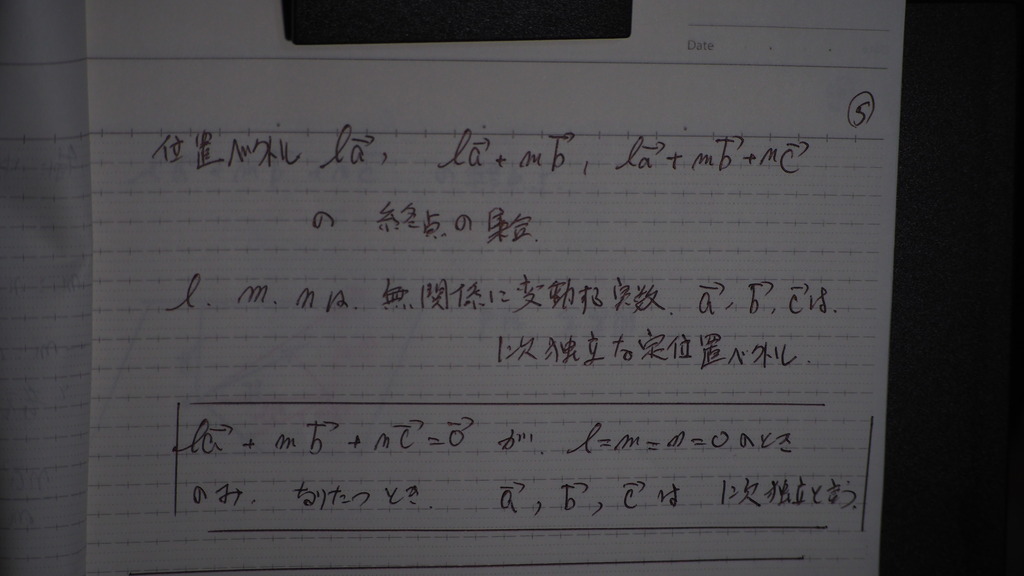 Date
⑤
位置ベクトル l\vec{a}, l\vec{a} + m\vec{b}, l\vec{a} + m\vec{b} + n\vec{c}
の 終点の集合.
l. m. nは. 無関係に変動する実数. \vec{a}, \vec{b}, \vec{c}は.
1次独立な定位置ベクトル.
l\vec{a} + m\vec{b} + n\vec{c} = \vec{0} が. l=m=n=0のとき
のみ. なりたつとき. \vec{a}, \vec{b}, \vec{c} は 1次独立と言う.